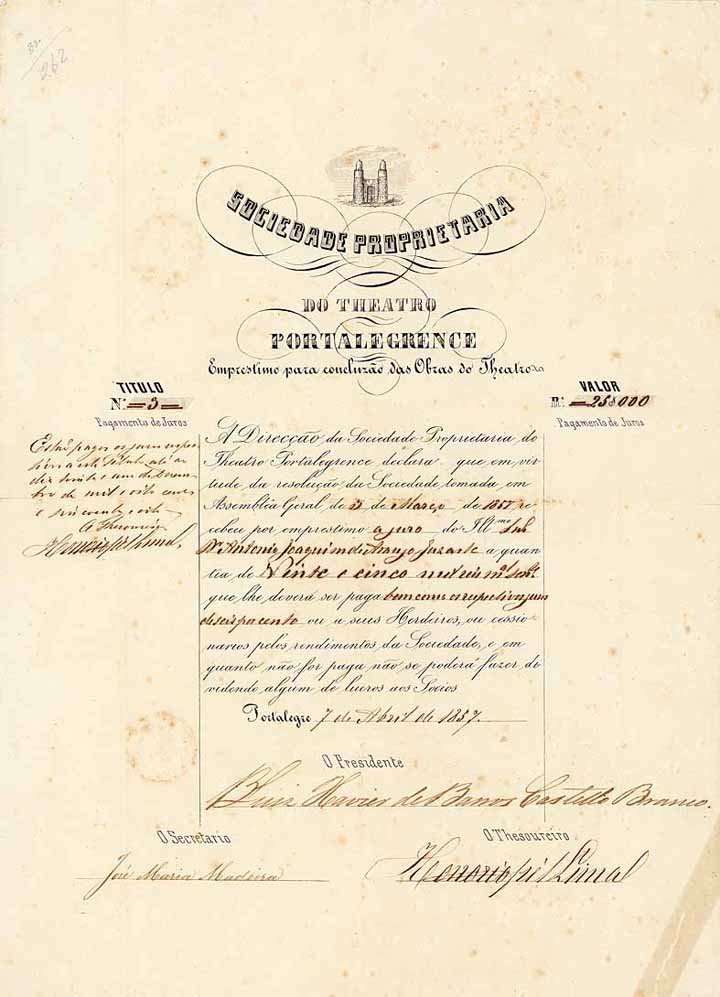 262
SOCIEDADE PROPRIETARIA
DO THEATRO
PORTALEGRENCE
Emprestimo para concluzão das Obras do Theatro
TITULO
Nº 3
Pagamento de Juros
VALOR
Rs 25$000
Pagamento de Juros
Estão pagos os juros
este Titulo até
dez
de mil e oito centos
e cincoenta e oito
O Thesoureiro
A Direcção da Sociedade Proprietaria do
Theatro Portalegrence declara que em vir-
tude da resolução da Sociedade tomada em
Assembléa Geral de 3 de Março de 1857 re-
cebeu por emprestimo a juro do Illmo Snr
Antonio Joaquim de Araujo Juzarte a quan-
tia de Vinte e cinco mil reis
que lhe deverá ser paga bem como o respectivo juro
de seis por cento ou a seus Herdeiros, ou cessio-
narios pelos rendimentos da Sociedade, e em
quanto não for paga não se poderá fazer de
vedendo algum de lucros aos Socios
Portalegre 7 de Abril de 1857.
O Presidente
Luiz Xavier de Barros Castello Branco.
O Secretario
O Thesoureiro
José Maria Madeira